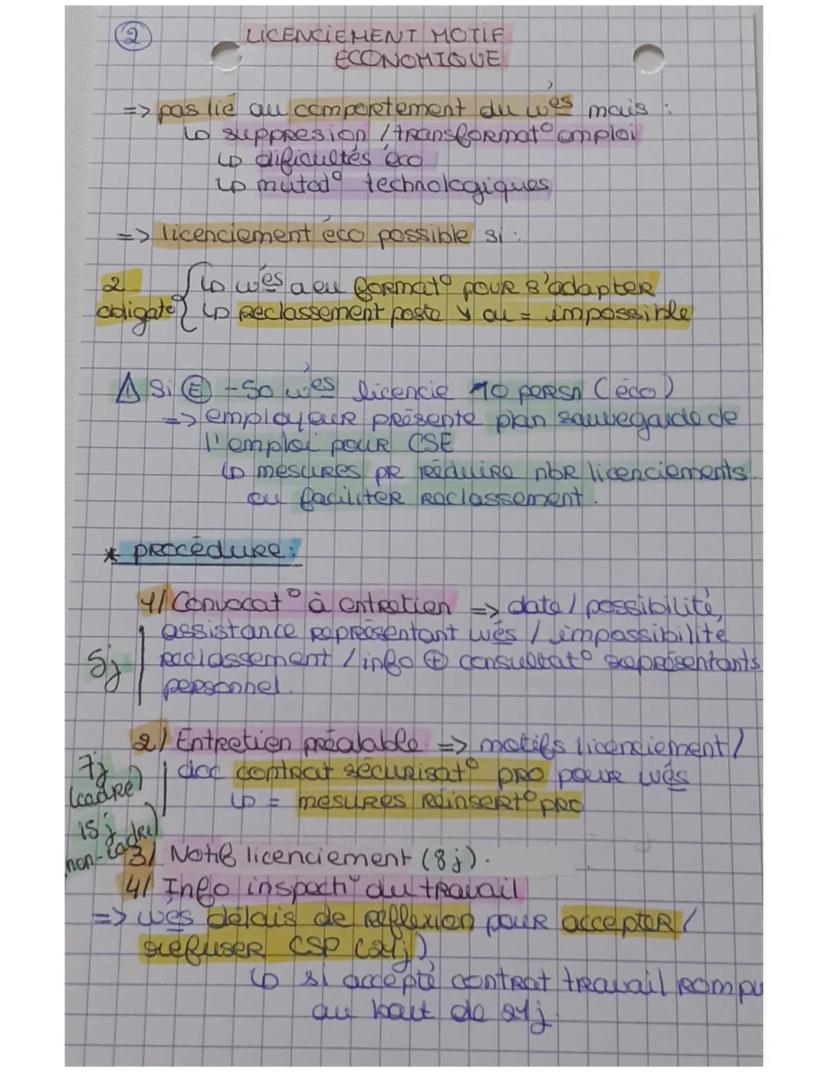 ② LICENCIEMENT MOTIF
ECONOMIQUE
=> pas lié au comportement du wés mais :
↳ suppresion / transformat° emploi
↳ dificultés éco
↳ mutat° technologiques
=> licenciement éco possible si :
2 obligat° { ↳ wés a eu format° pour s'adapter
↳ reclassement poste ↘ ou = impossible
⚠ Si Ⓔ -50 wés licencie 10 persn (éco)
=> employeur présente plan sauvegarde de
l'emploi pour CSE
↳ mesures pr réduire nbr licenciements
ou faciliter reclassement.
* procédure :
1/ Convocat° à entretien => date / possibilité,
assistance représentant wés / impossibilité
5j reclassement / info ⊕ consultat° représentants
personnel.
2/ Entretien préalable => motifs licenciement /
7j (cadre) doc contrat sécurisat° pro pour wés
↳ = mesures réinsert° pro
15j non-cadre)
3/ Notif licenciement (8j).
4/ Info inspect° du travail
=> wés délais de réflexion pour accepter /
réfuser CSP (21j)
↳ si accepté contrat travail rompu
au bout de 21j